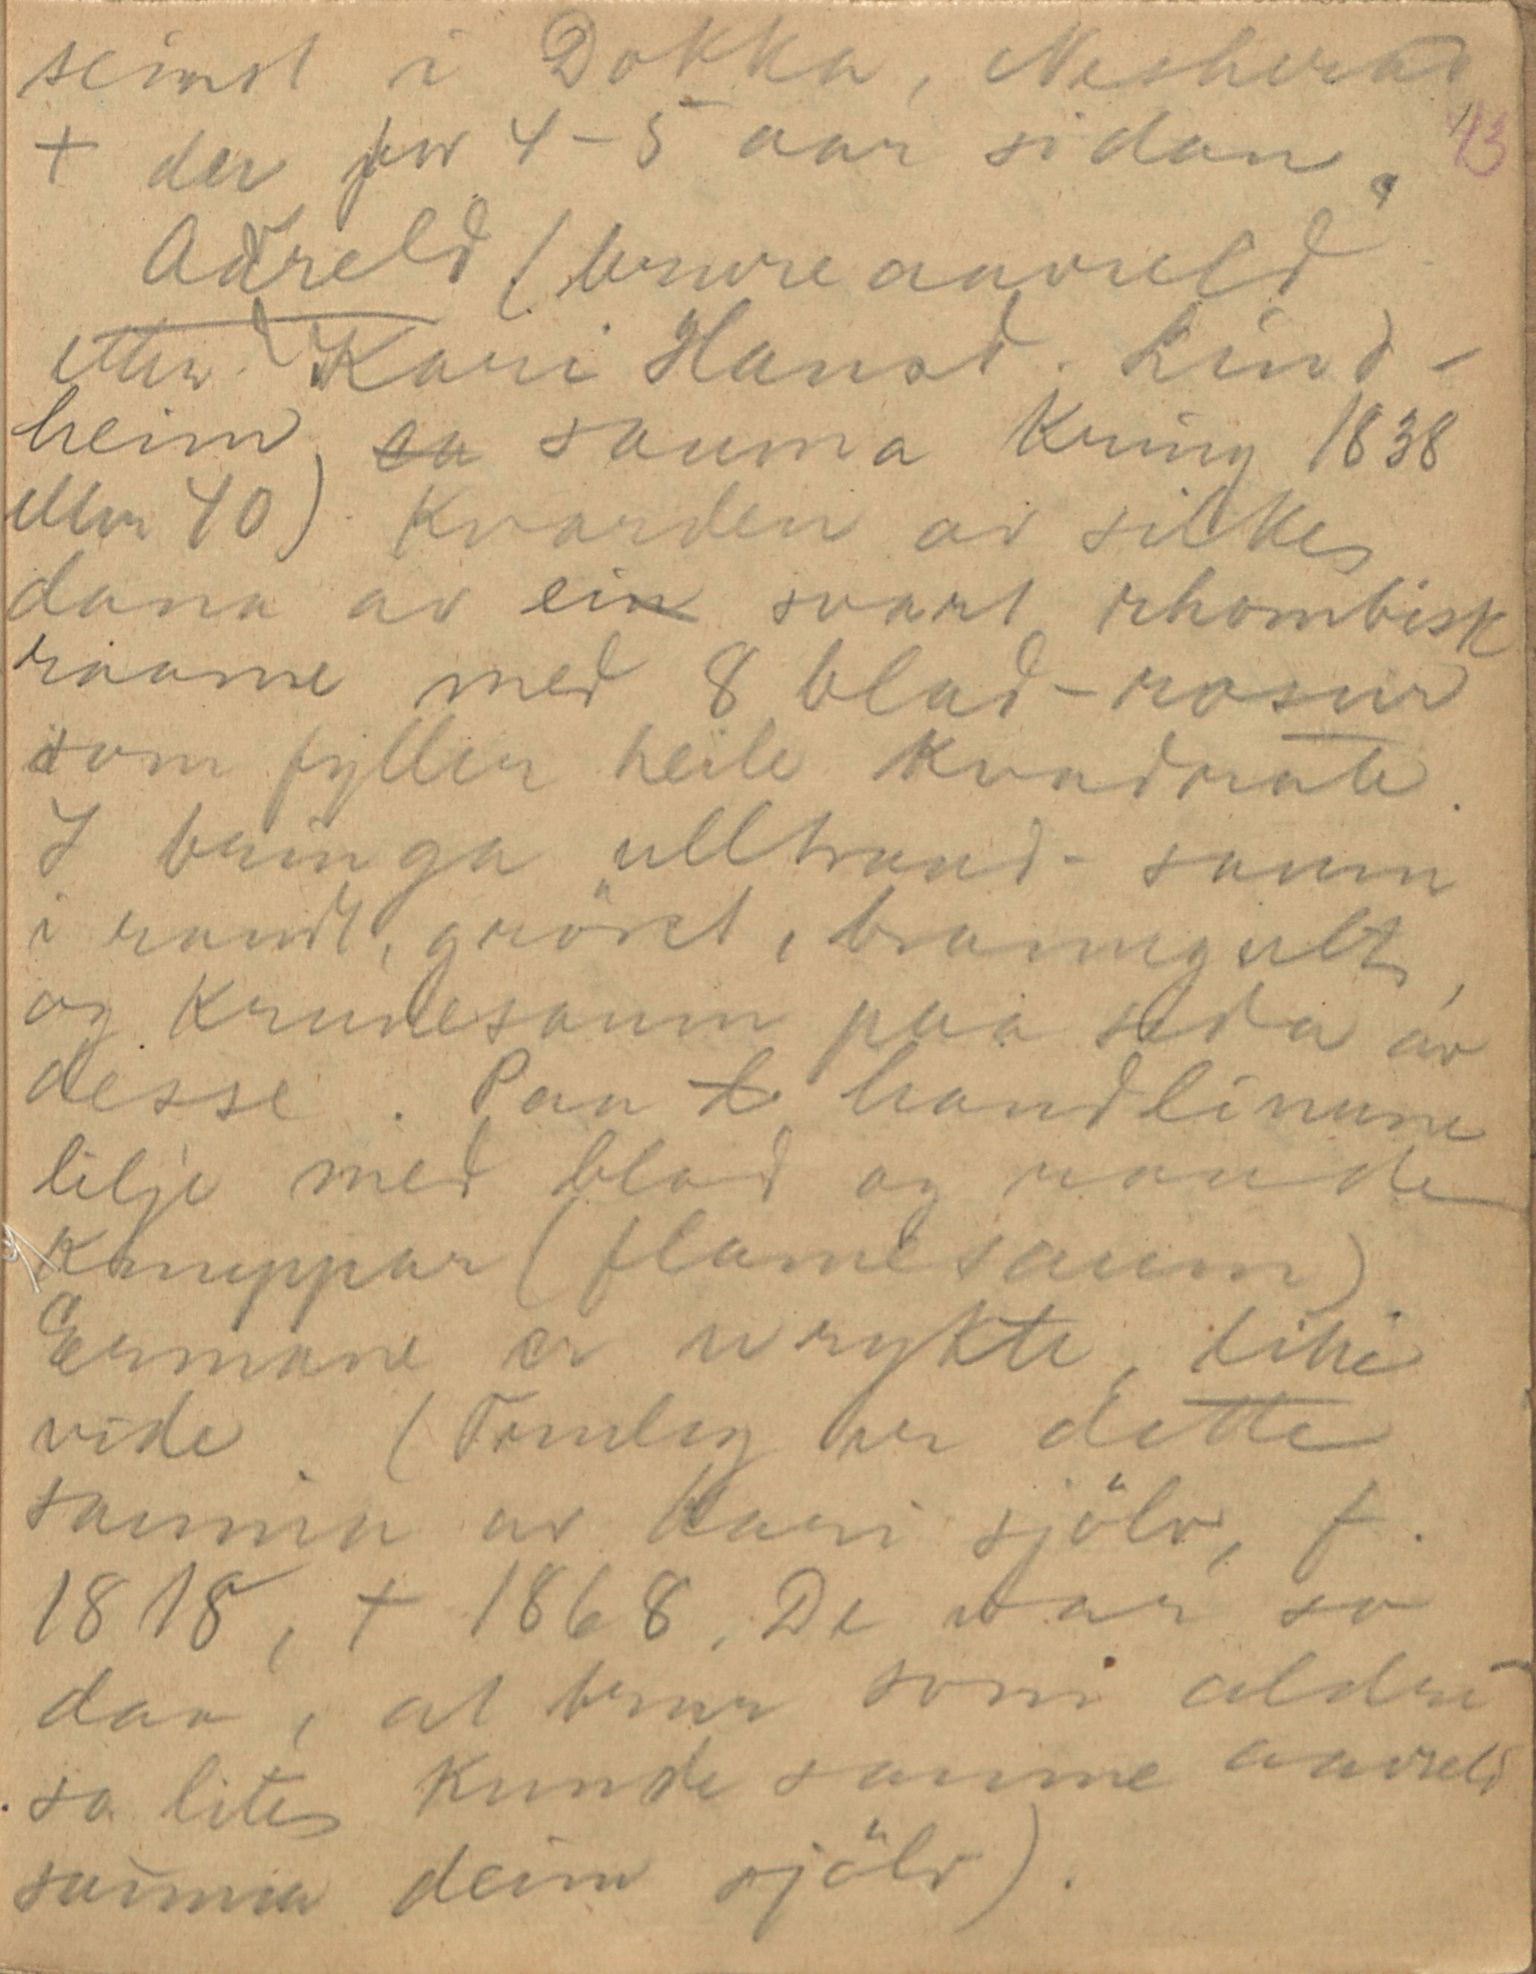 seinst i Dokka, Nesherad
+ der for 4-5 aar sidan.
13
Aareld (brureaareld
etter Kari Hansd. Lind-
heim, ca sauma kring 1838
eller 40). Kvarden av silke,
dana av ein svart rhombisk
raame med 8 blad-rosur
som fyller heile kvadrate.
I bringa ulltraad-saum
i raudt, grönt, brannegult,
og krunesaum paa sida av
desse. Paa handlinune
lilje med blad og runde
knuppar (flamesaum)
Ermane er urykte, like
vide. (Truleg er dette
sauma av Kari sjölv, f.
1818, + 1868. De var so
daa, at brur som aldri
so lite kunde saume aareld
sauma deim sjölv).